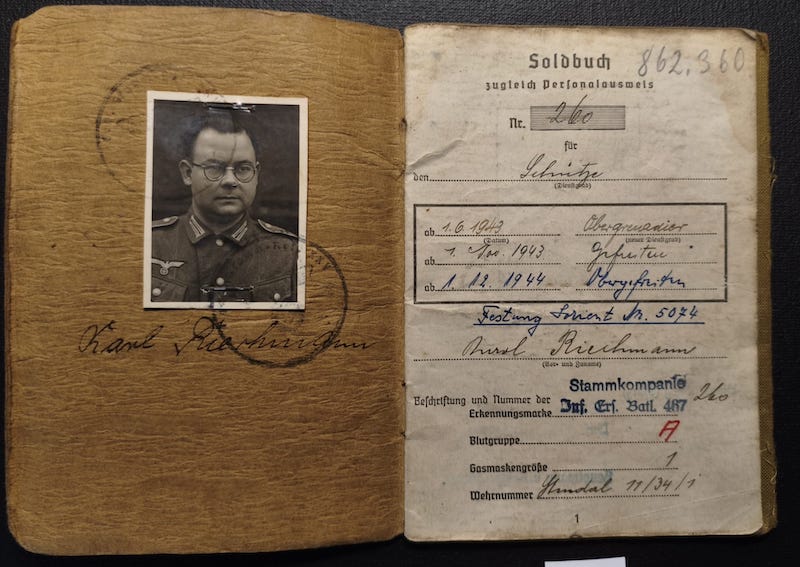 Karl Riechmann
Soldbuch
862.360
zugleich Personalausweis
Nr. 260
für
den Schütze
(Dienstgrad)
ab 1.6 1943 Obergrenadier
(Datum) (neuer Dienstgrad)
ab 1. Nov. 1943 Gefreiten
ab 1. 12. 1944 Obergefreiten
Festung Lorient Nr. 5074
Karl Riechmann
(Vor- und Zuname)
Beschriftung und Nummer der
Erkennungsmarke
Stammkompanie
Inf. Ers. Batl. 467
260
Blutgruppe A
Gasmaskengröße 1
Wehrnummer Stendal 11/34/1
1